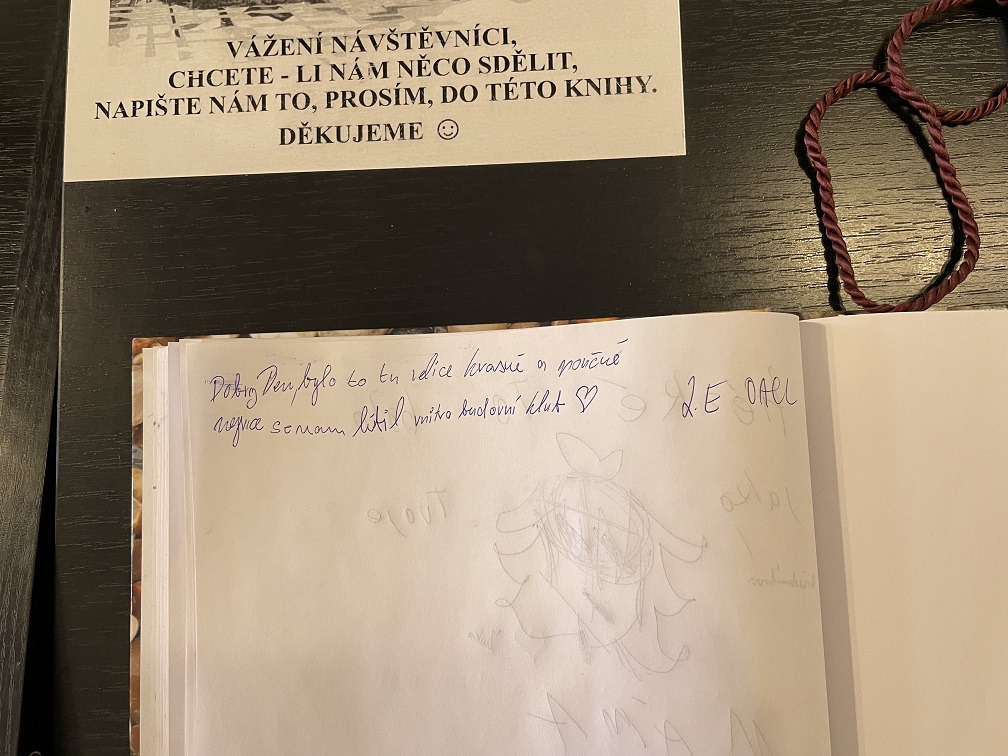 VÁŽENÍ NÁVŠTĚVNÍCI,
CHCETE - LI NÁM NĚCO SDĚLIT,
NAPIŠTE NÁM TO, PROSÍM, DO TÉTO KNIHY.
DĚKUJEME ☺
Dobrý Den, bylo to tu velice krasné a poučné
nejvice se mam libil vnitro budovní klub ♡
2.E OACL
Tvoje
jako